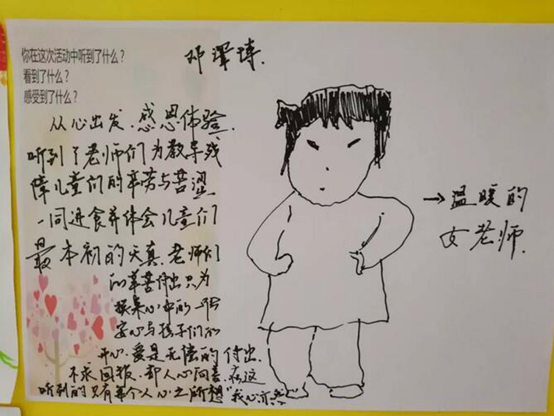 你在这次活动中听到了什么？
看到了什么？
感受到了什么？
邓泽琦.
从心出发.感恩体验.
听到了老师们为教导残
障儿童们的辛苦与苦涩
一同进食并体会儿童们
最本初的天真.老师们
的辛苦付出只为
换来心中的一份
安心与孩子们的
开心.爱是无偿的付出.
不求回报.却人心向善.在这
听到的只有每个人心之所想"我心
→温暖的
女老师.